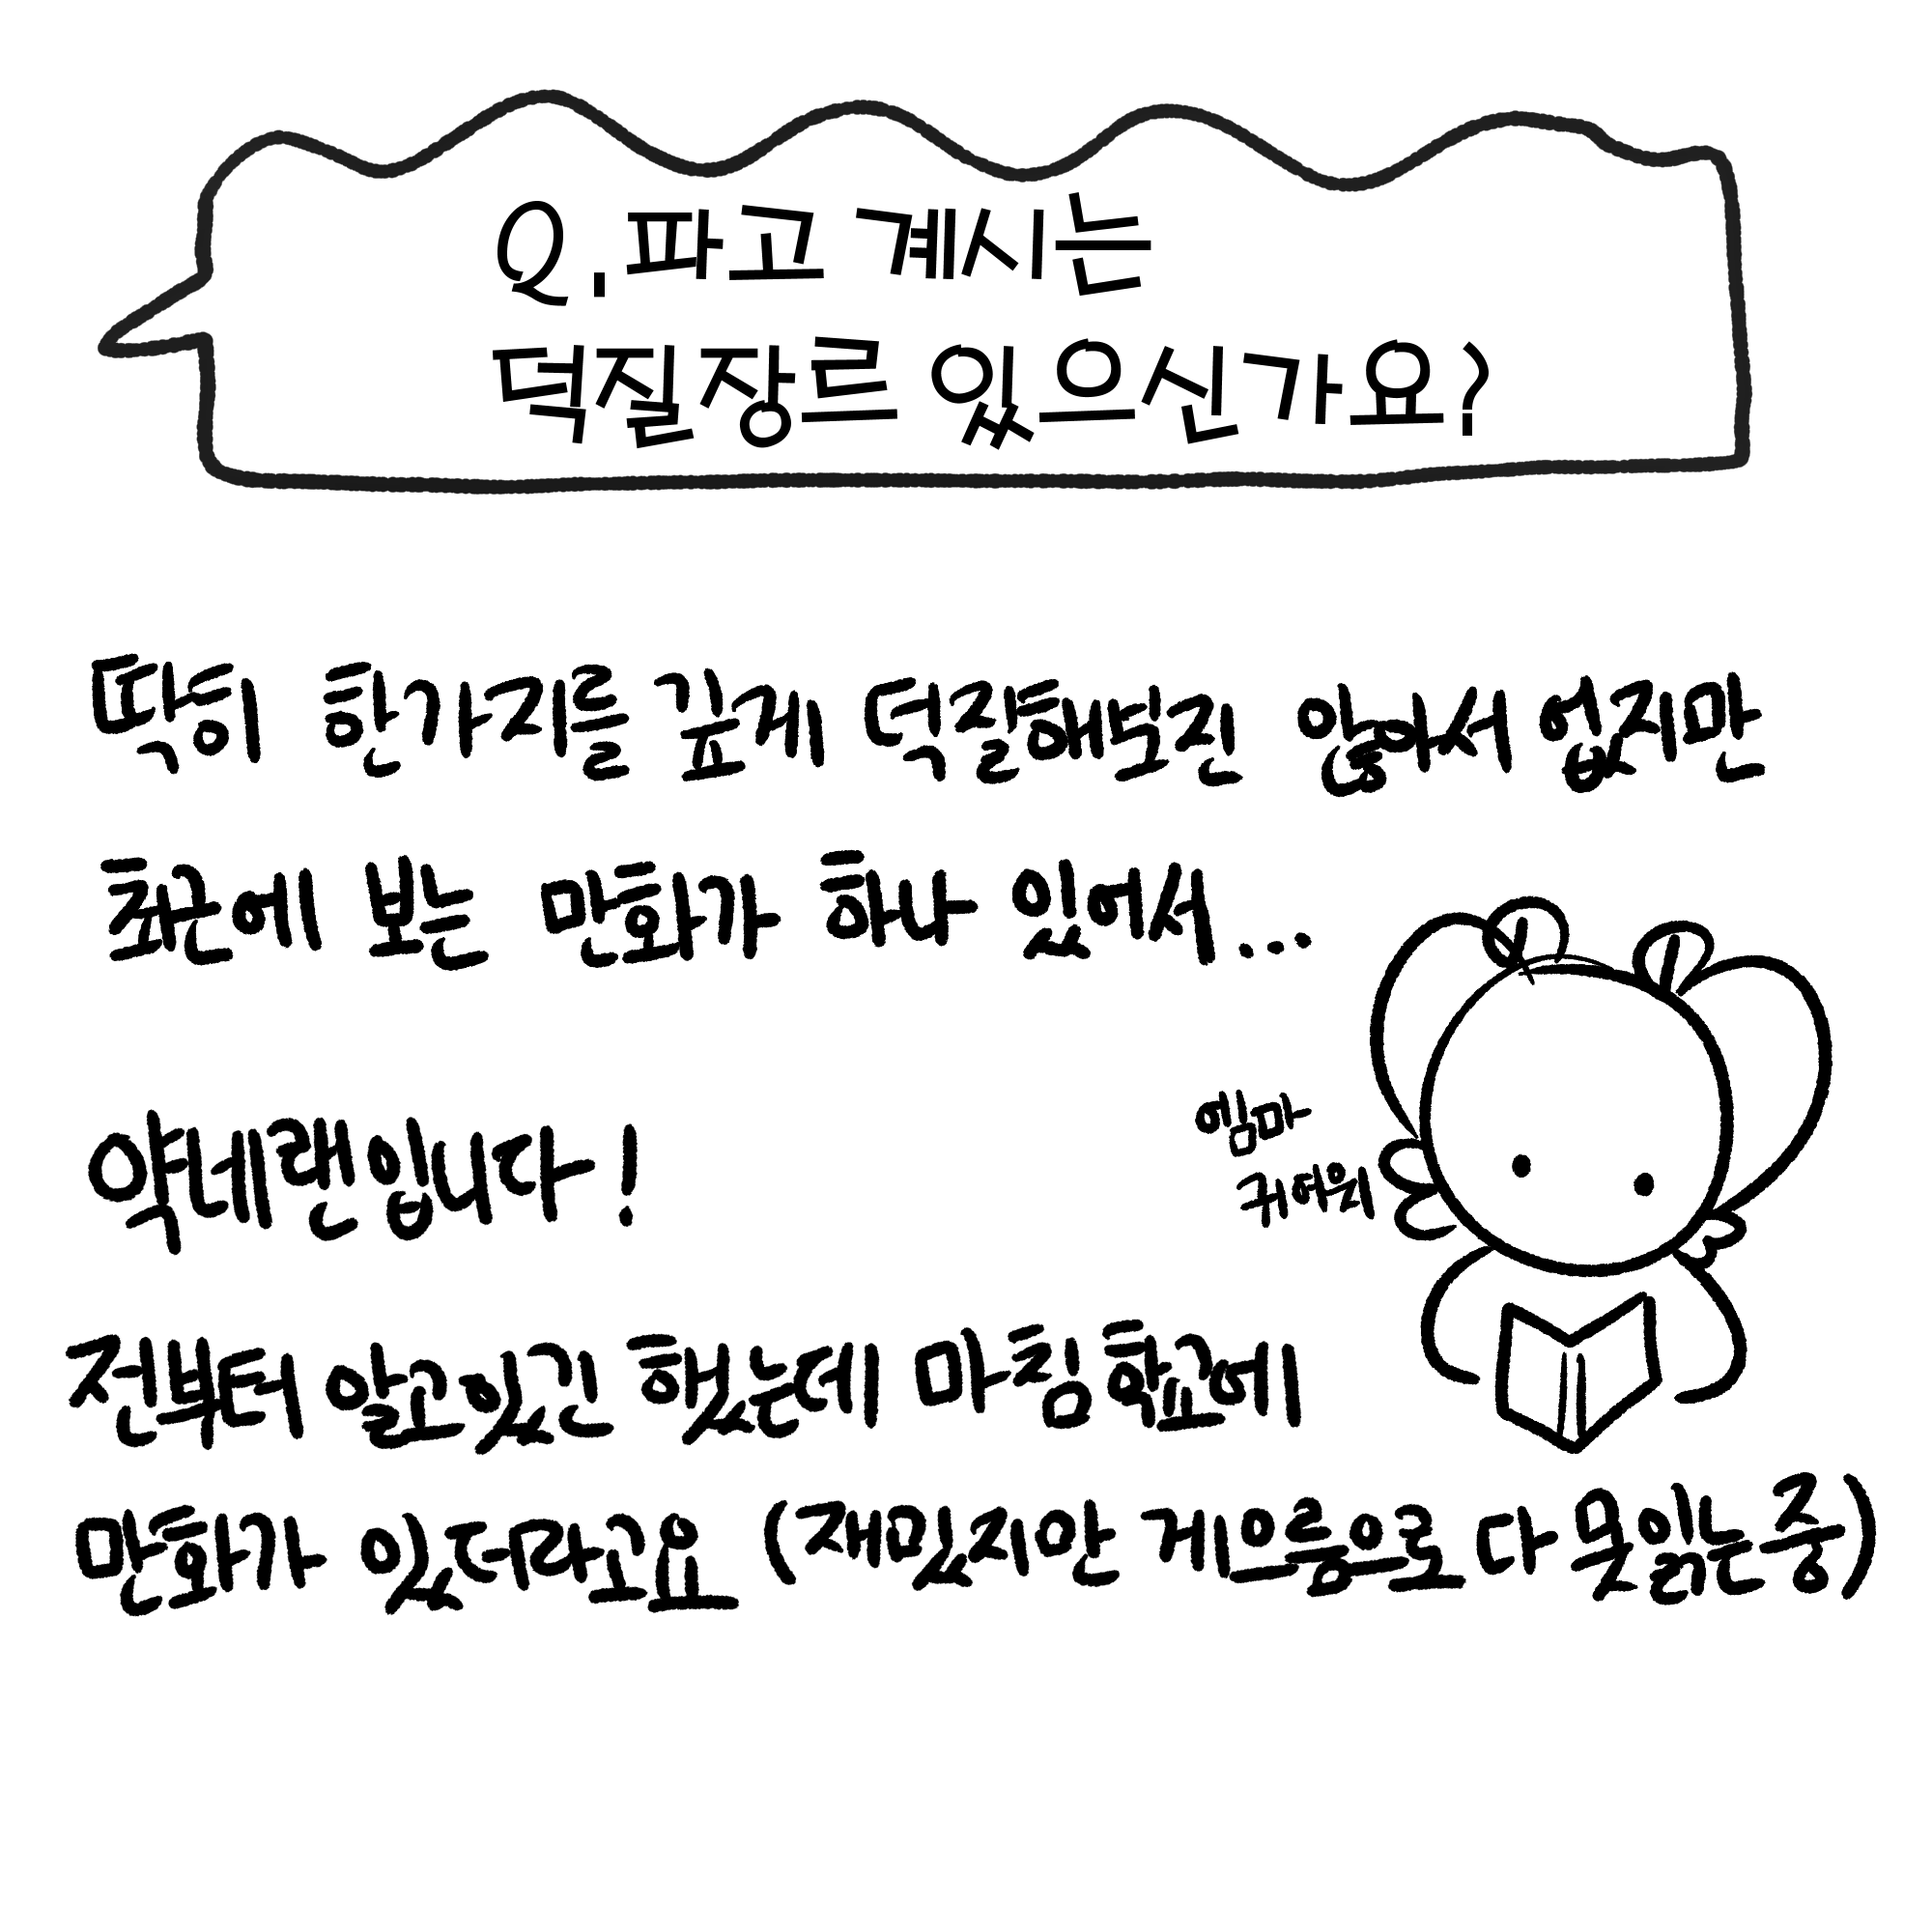 Q.파고 계시는
덕질장르 있으신가요?
딱히 한가지를 깊게 덕질해보진 않아서 없지만
최근에 보는 만화가 하나 있어서...
엠마
귀여워
약네랜입니다!
전부터 알고있긴 했는데 마침 학교에
만화가 있더라고요 (재밌지만 게으름으로 다 못읽는중)